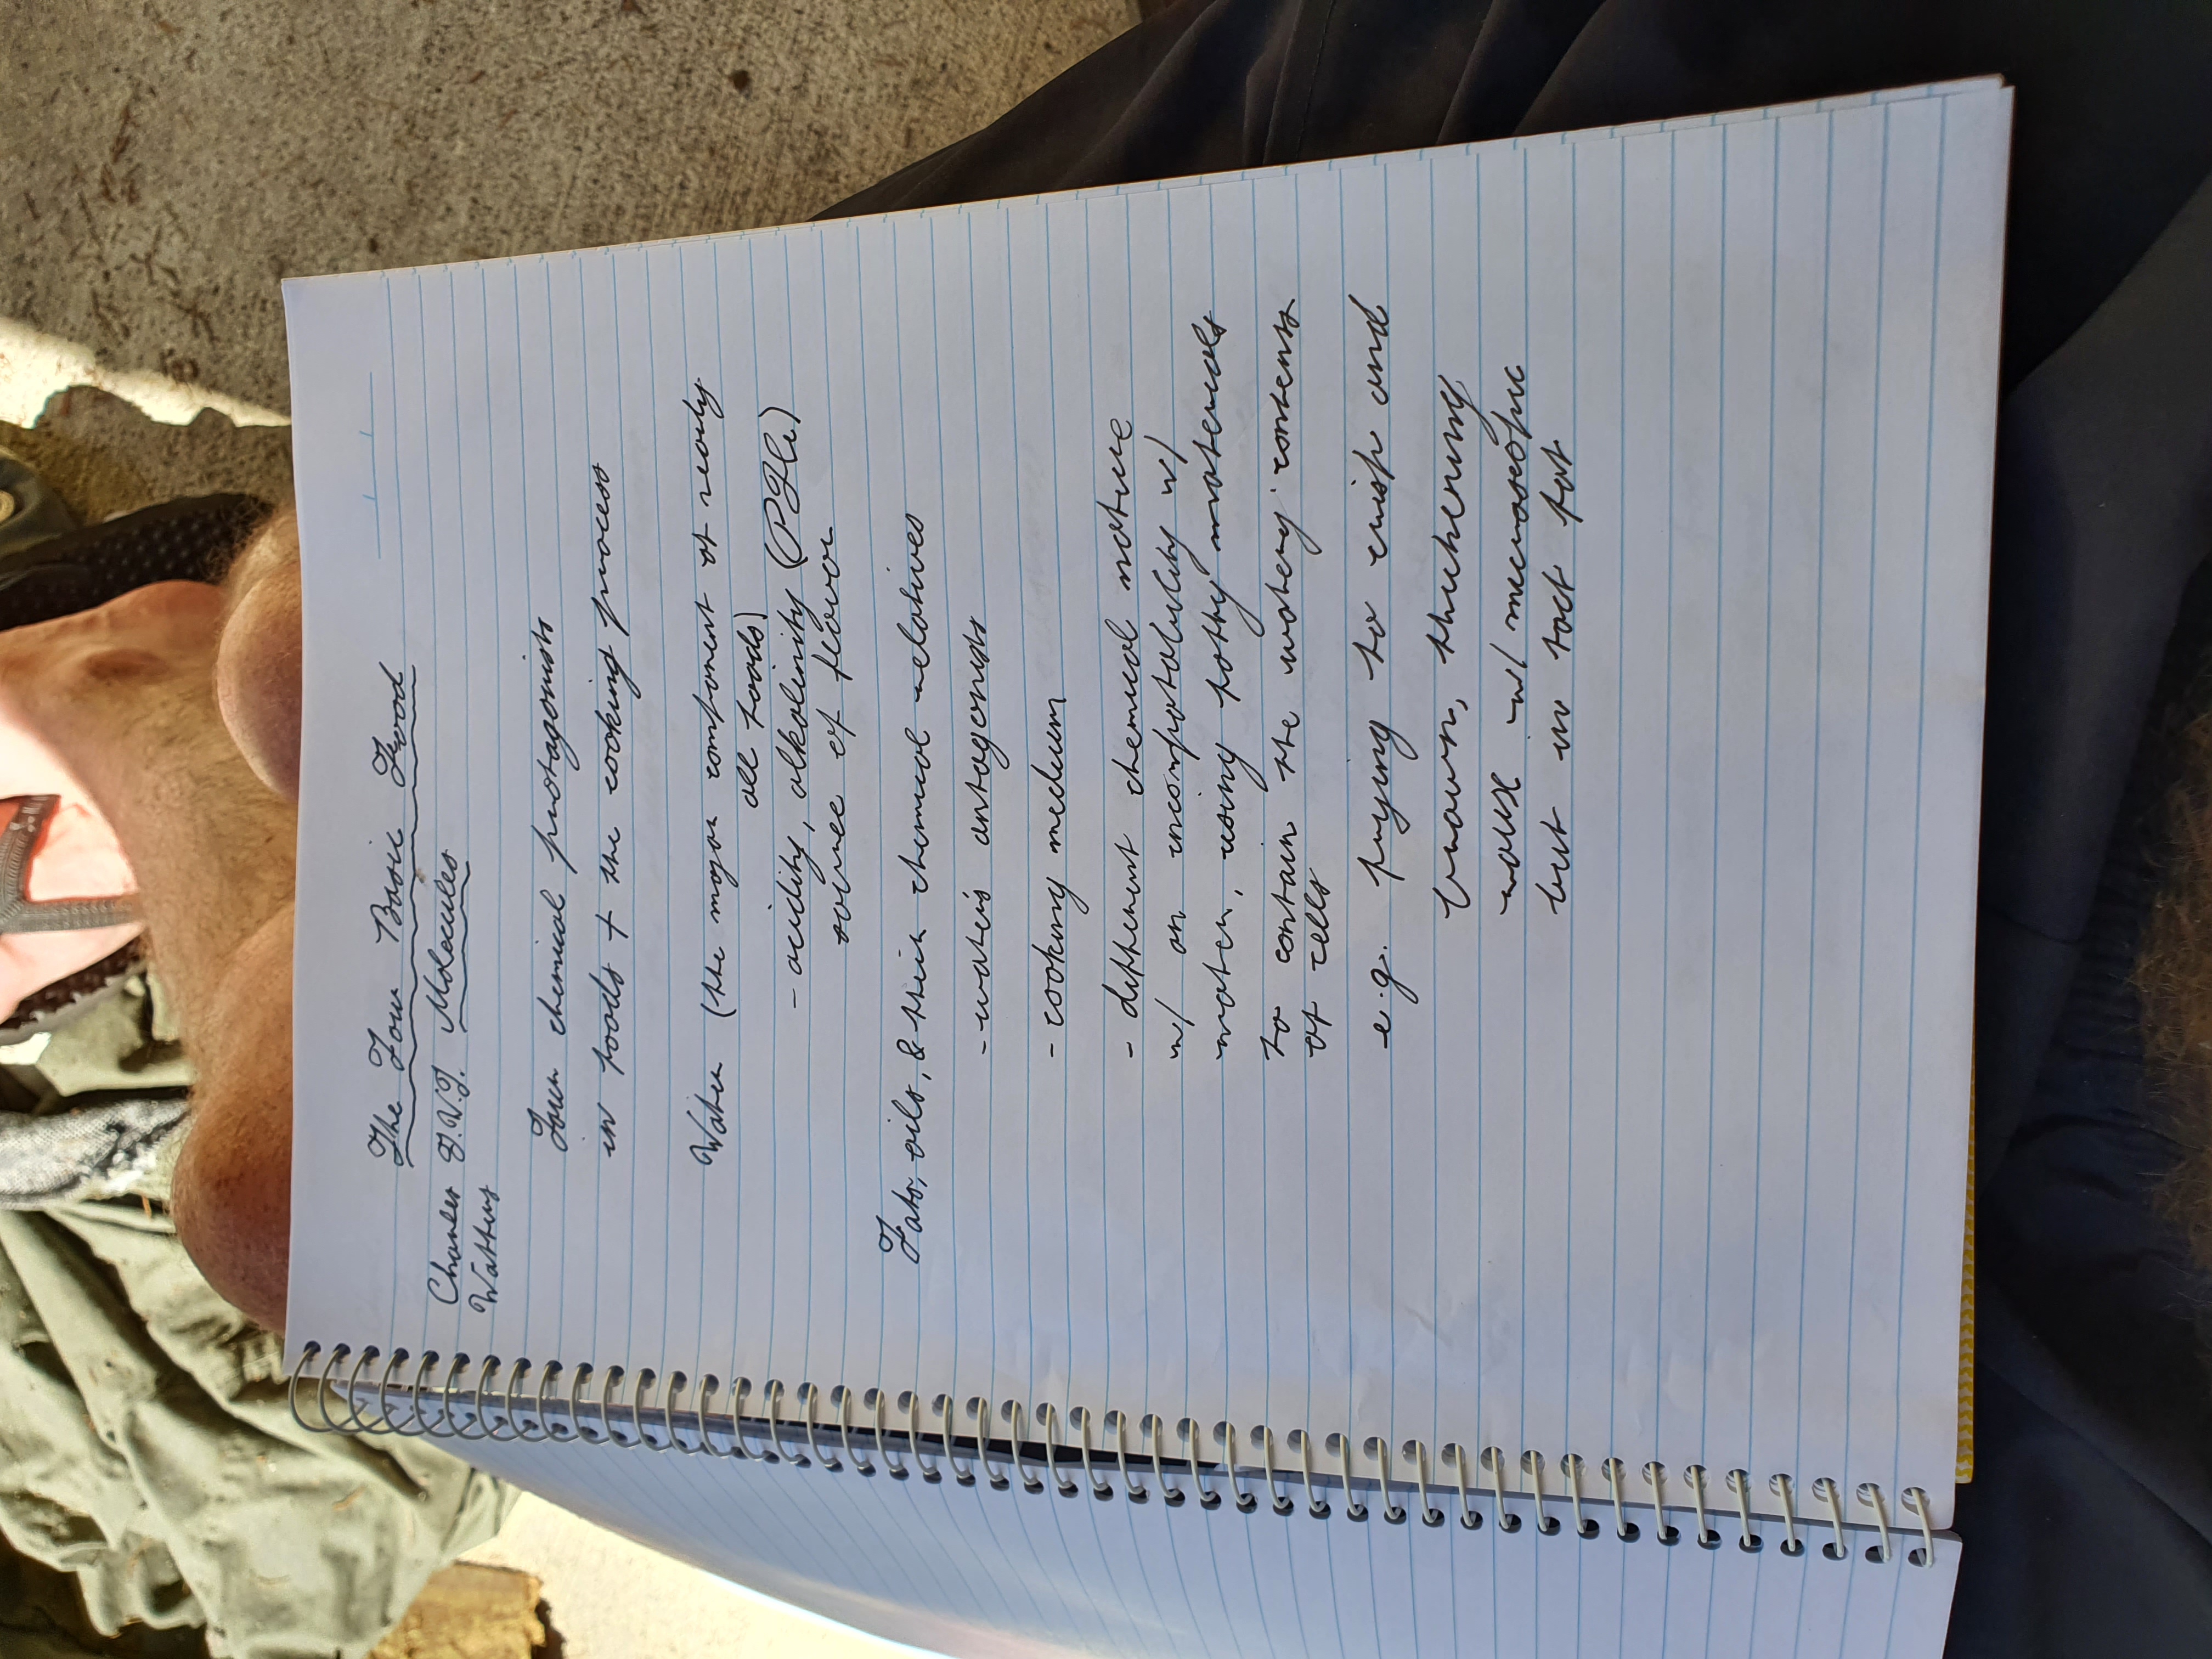 The Four Basic Food
Charles F.V.J. Molecules
Watters
Four chemical protagonists
in foods + the cooking process
Water (the major component of nearly
all foods)
- acidity, alkalinity
source of flavor
Fats, oils, & their chemical relatives
- water's antagonists
- cooking medium
- different chemical nature
w/ an incompatability w/
water, using fatty materials
to contain the watery contents
of cells
e.g. frying to crisp and
brown, thickening
w/ microscopic
but in tact fat